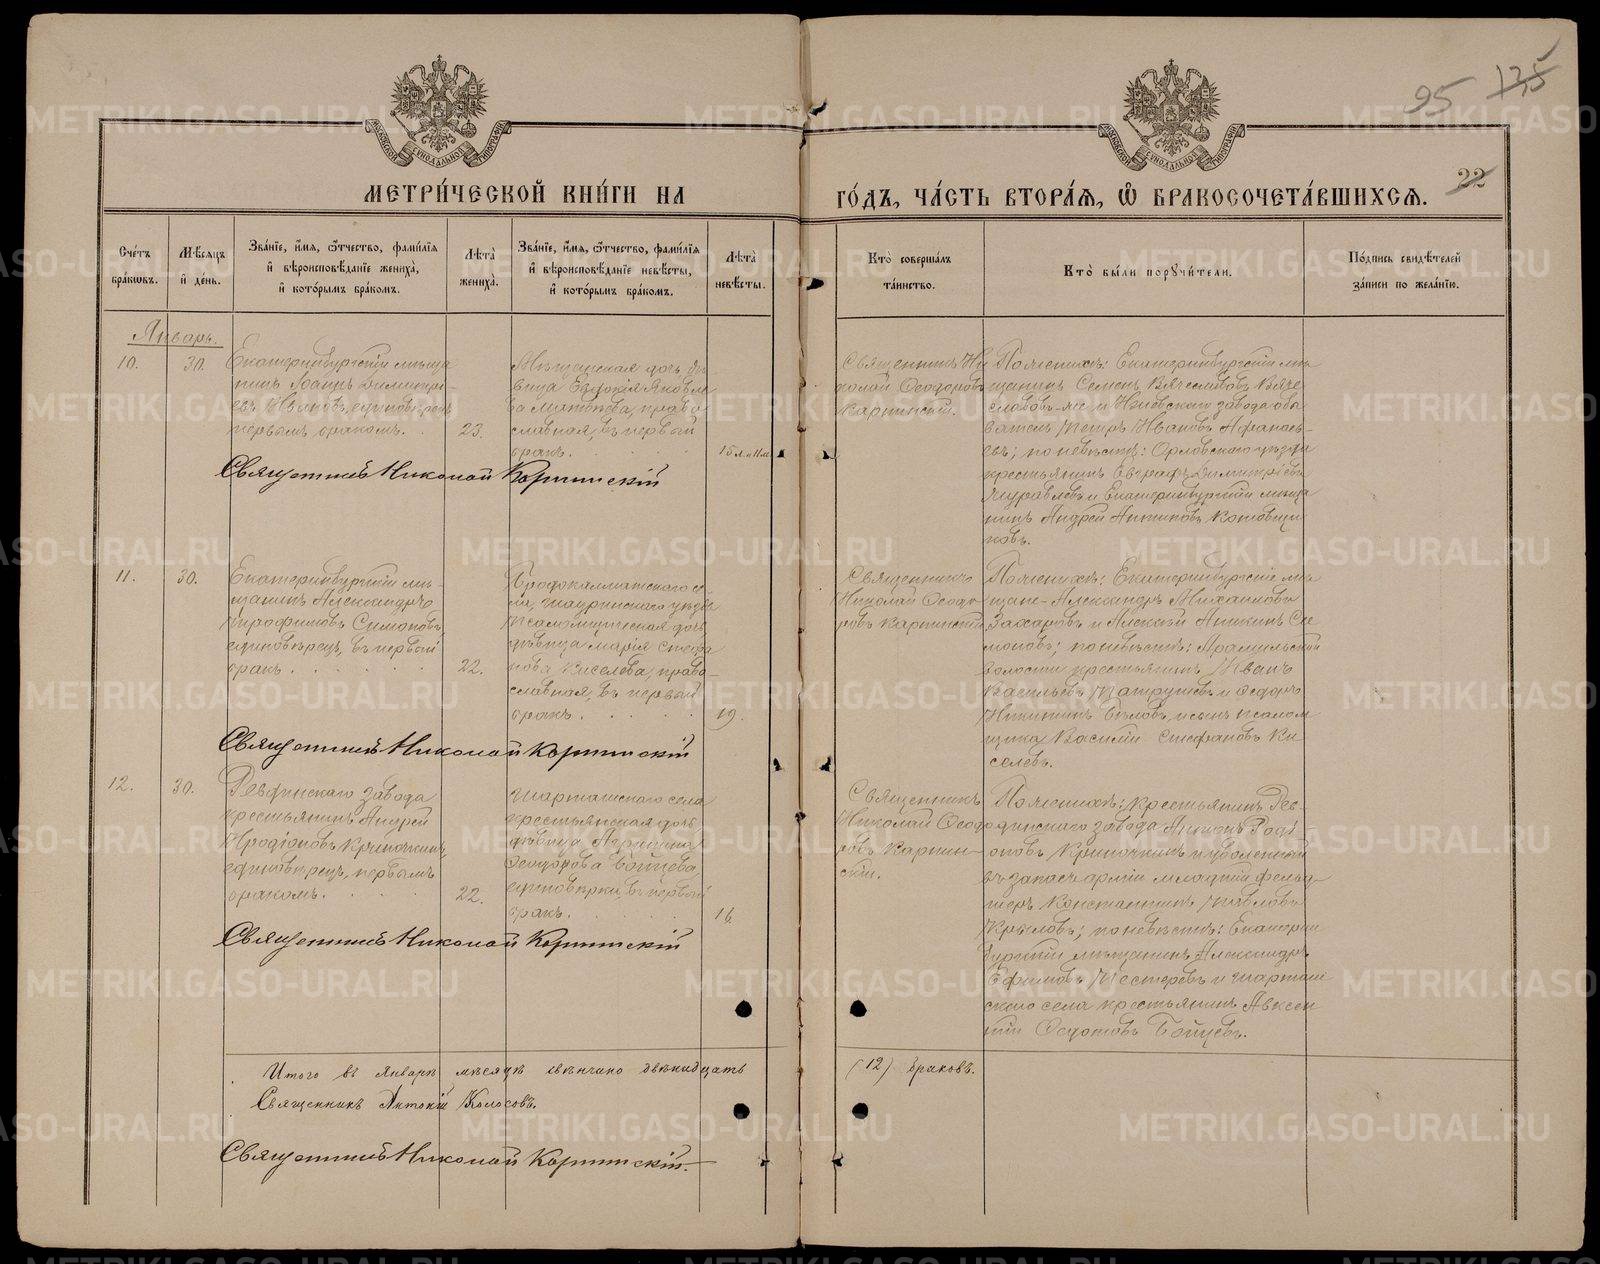 95 135
22
МЕТРИ́ЧЕСКОЙ КНИ́ГИ НА ГО́ДЪ, ЧА́СТЬ ВТОРА́Я, Ѡ҆ БРАКОСОЧЕТА́ВШИХСЯ.
Сче́тъ бра́ковъ.
Мѣ́сяцъ и҆ де́нь.
Зва́нїе, и҆́мя, ѻ҆́тчество, фами́лїя
и҆ вѣроисповѣ́данїе жениха̀,
и҆ кото́рымъ бра́комъ.
Лѣта̀ жениха̀.
Зва́нїе, и҆́мя, ѻ҆́тчество, фами́лїя
и҆ вѣроисповѣ́данїе невѣ́сты,
и҆ кото́рымъ бра́комъ.
Лѣта̀ невѣ́сты.
Кто̀ соверша́лъ та́инство.
Кто̀ бы́ли порꙋчи́тели.
По́дпись свидѣ́телей за́писи по жела́нїю.
Январь.
10.
30.
Екатеринбургскій мѣща
нинъ Іоаннъ Димитрі-
евъ Ивановъ, единовѣрецъ
первымъ бракомъ.
23.
Мѣщанская дочь дѣ-
вица Евдокія Яковле
ва, право
славная, въ первый
бракъ.
15 л. и 11 м.
Священникъ Ни
колай Ѳеодоровъ
Карпинскій.
По женихѣ: Екатеринбургскій мѣ
щанинъ Семенъ Вячеславовъ Вяче
славовъ-же и Невскаго завода обы
ватель Петръ Ивановъ Афанась-
евъ; по невѣстѣ: Орловскаго уѣзда
крестьянинъ Евграфъ Димитріевъ
Журавлевъ и Екатеринбургскій мѣща
нинъ Андрей Котовщи
ковъ.
Священникъ Николай Карпинскій
11.
30.
Екатеринбургскій мѣ-
щанинъ Александръ
Трофимовъ Симоновъ
единовѣрецъ, въ первый
бракъ.
22.
Бродокалмакскаго се
ла, Шадринскаго уѣзда
псаломщическая дочь
дѣвица Марія Стефа
нова Киселева, право-
славная, въ первый
бракъ.
19.
Священникъ
Николай Ѳеодо
ровъ Карпинскій
По женихѣ: Екатеринбургскіе мѣ
щане Александръ Михаиловъ
Захаровъ и Алексѣй Аникинъ Си
моновъ; по невѣстѣ: Арамильской
волости крестьянинъ Иванъ
Васильевъ Патрушевъ и Ѳедоръ
Никитинъ Бѣловъ, и сынъ псалом
щика Василій Стефановъ Ки
селевъ.
Священникъ Николай Карпинскій
12.
30.
Ревдинскаго завода
крестьянинъ Андрей
Иродіоновъ Криночкинъ,
единовѣрецъ, первымъ
бракомъ.
22.
Шарташскаго села
крестьянская дочь
дѣвица
Ѳеодорова Бойцева
единовѣрка, въ первый
бракъ.
16.
Священникъ
Николай Ѳеодо
ровъ Карпин-
скій.
По женихѣ: крестьянинъ Рев-
динскаго завода Родѵ
оновъ Криночкинъ и уволенный
въ запасъ арміи младшій фельд
шеръ Константинъ Павловъ
Крыловъ; по невѣстѣ: Екатерин
бургскій мѣщанинъ Александръ
Ефимовъ Нестеровъ и Шарташ
скаго села крестьянинъ Авксен
тій Бойцевъ.
Священникъ Николай Карпинскій
Итого въ Январѣ мѣсяцѣ вѣнчано двѣнадцать (12) браковъ.
Священникъ Антоній Колосовъ.
Священникъ Николай Карпинскій.